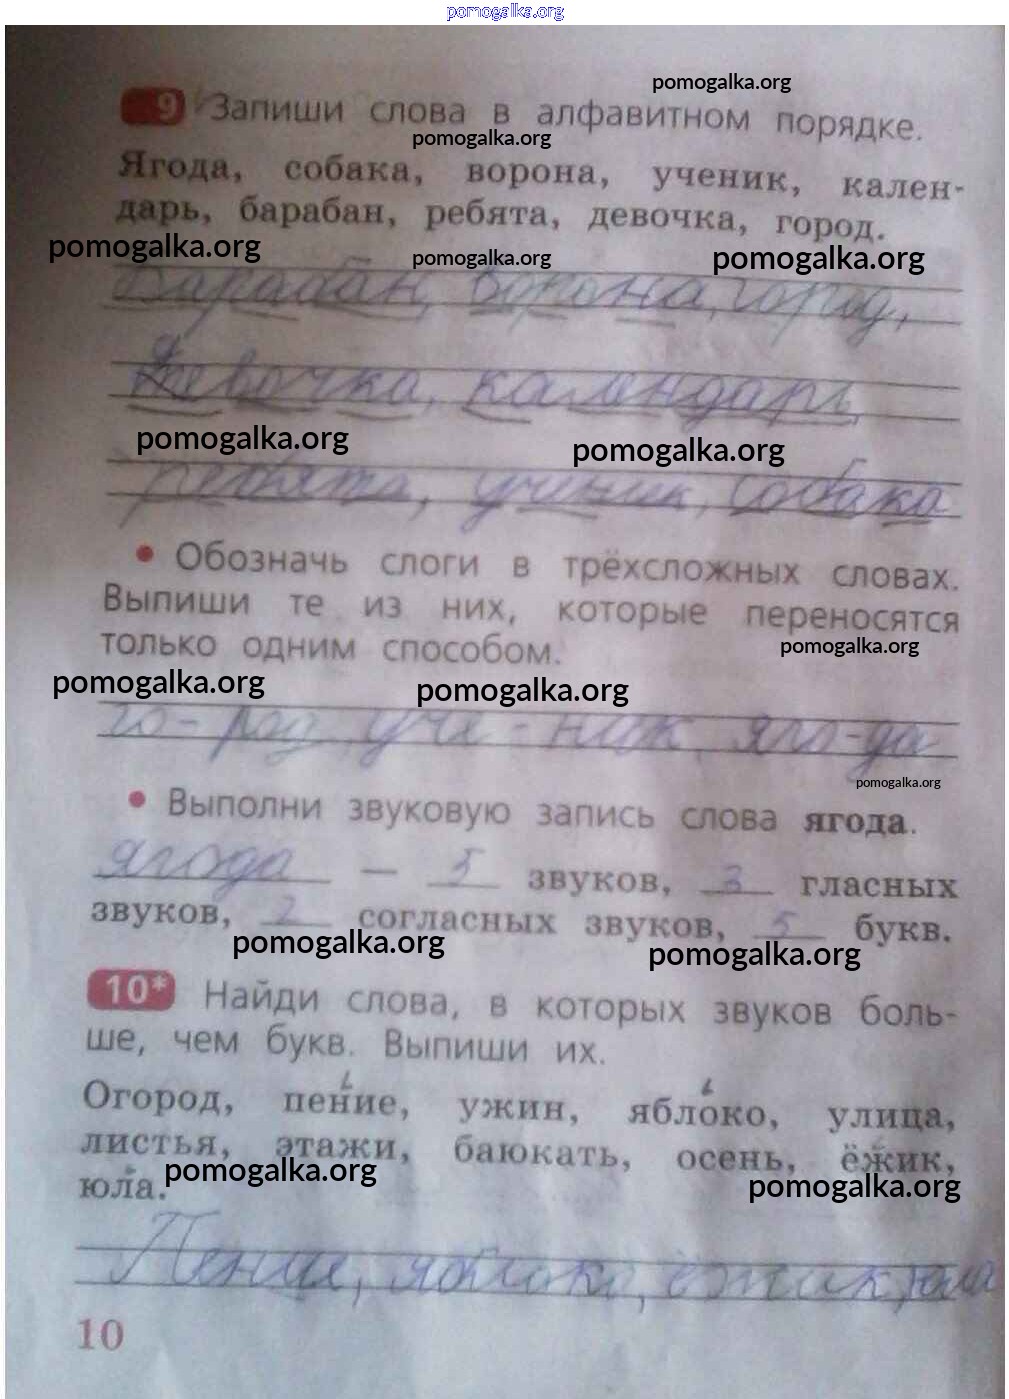 pomogalka.org
pomogalka.org
9 Запиши слова в алфавитном порядке.
pomogalka.org
Ягода, собака, ворона, ученик, кален-
дарь, барабан, ребята, девочка, город.
pomogalka.org pomogalka.org pomogalka.org
Барабан, ворона, город,
Девочка, календарь,
pomogalka.org pomogalka.org
ребята, ученик, собака
• Обозначь слоги в трёхсложных словах.
Выпиши те из них, которые переносятся
только одним способом.
pomogalka.org
pomogalka.org pomogalka.org
го-род, уче-ник, яго-да
pomogalka.org
• Выполни звуковую запись слова ягода.
ягода — 5 звуков, 3 гласных
звуков, 2 согласных звуков, 5 букв.
pomogalka.org pomogalka.org
10* Найди слова, в которых звуков боль-
ше, чем букв. Выпиши их.
Огород, пение, ужин, яблоко, улица,
листья, этажи, баюкать, осень, ёжик,
юла.
pomogalka.org pomogalka.org
Пение, яблоко, ёжик, юла
10